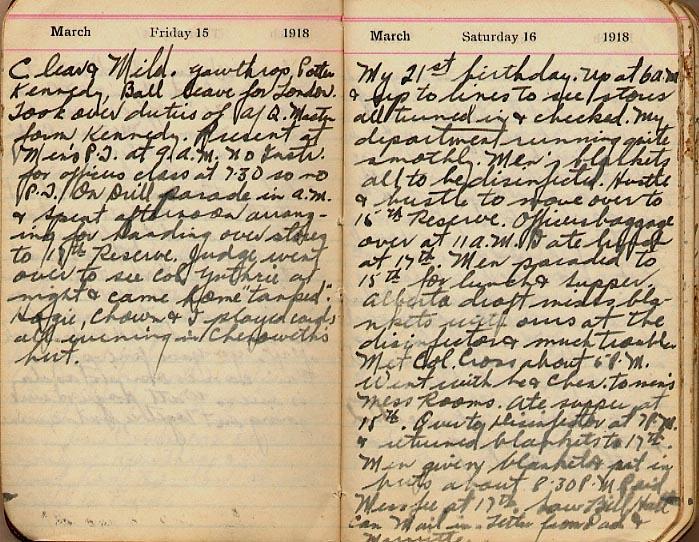 March Friday 15 1918
C leave Mild. Gawthrop, Potter
Kennedy, Ball leave for London.
Took over duties of a/Q. Master
form Kennedy. Present at
Men's P.T. at 9 A.M. no Instr.
for officers class at 7.30 so no
P.T. On Drill parade in a.m.
& spent afternoon arrang-
ing for handing over stores
to 19th Reserve. Judge went
over to see Col Guthrie at
night & came home "tanked".
Hogie, Chown & I played cards
all evening in Chenowiths
hut.
March Saturday 16 1918
My 21st birthday. Up at 6 a.m.
& up to lines to see stores
all turned in & checked. My
department running quite
smothly. Men's blankets
all to be disinfected. Hustle
& bustle to move over to
15th Reserve. Officers baggage
over at 11 A.M. Date lunch
at 17th. Men paraded to
15th for lunch & supper.
Alberta draft mixes bla-
nkets with ours at the
disinfector & much trouble.
Met Col. Cross about 5 P.M.
Went with he & Chen. to men's
Mess Rooms. Ate supper at
15th. Over to disinfector at 7 P.M.
& returned blankets to 17th.
Men given blankets & put in
huts about 8.30 P.M. Paid
Mess fee at 17th. Saw Bill Hall
Can Mail in. Letter from Dad &